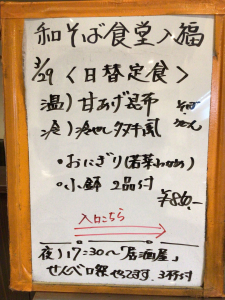 和そば食堂入福
3/29 <日替定食>
温) 甘あげ昆布 そば
冷) 冷やしタヌキ風 うどん
・おにぎり(若菜わかめ)
・小鉢 2品付
¥880.-
入口こちら
夜) 17:30〜「居酒屋」
せんべロ祭やってます。3杯付